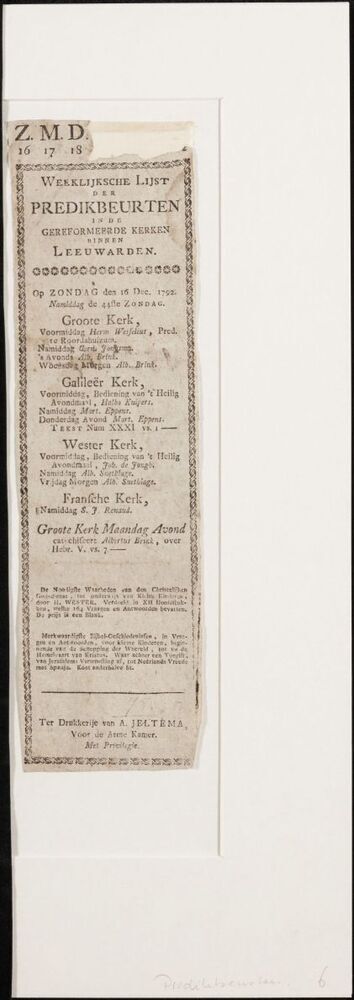 Z. M. D.
16 17 18
WEEKLIJKSCHE LIJST
DER
PREDIKBEURTEN
IN DE
GEREFORMEERDE KERKEN
BINNEN
LEEUWARDEN.
Op ZONDAG den 16 Dec. 1792.
Namiddag de 44ste ZONDAG.
Groote Kerk,
Voormiddag Herm Wesselius, Pred.
te Roordahuizum.
Namiddag Gert.
's Avonds Alb. Brink.
Woensdag Morgen Alb. Brink.
Galileër Kerk,
Voormiddag, Bediening van 't Heilig
Avondmaal, Kuipers.
Namiddag Mart. Eppens.
Donderdag Avond Mart. Eppens.
TEKST Num XXXI vs. 1 —
Wester Kerk,
Voormiddag, Bediening van 't Heilig
Avondmaal, Joh. de Jongh.
Namiddag Alb. Snethlage.
Vrijdag Morgen Alb. Snethlage.
Fransche Kerk,
Namiddag S. J. Renaud.
Groote Kerk Maandag Avond
catechiseert Albertus Brink, over
Hebr. V. vs. 7 —
De Nodigste Waarheden van den Christelijken
Godsdienst, tot onderwijs van Kleine Kinderen,
door H. WESTER. Verdeeld in XII Hoofdstukken,
welke 164 Vragen en Antwoorden bevatten.
De prijs is een Blank.
Merkwaardigste Bijbel-Geschiedenissen, in Vragen
en Antwoorden, voor kleine Kinderen, beginnende
van de Schepping der Waereld, tot de
Hemelvaart van Kristus. Waar achter een Toegift,
van Jerusalems Verwoesting af, tot Nederlands Vreede
met Spanje. Kost anderhalve st.
Ter Drukkerije van A. JELTEMA,
Voor de Arme Kamer.
Met Privilegie.
Predikbeurten. 6